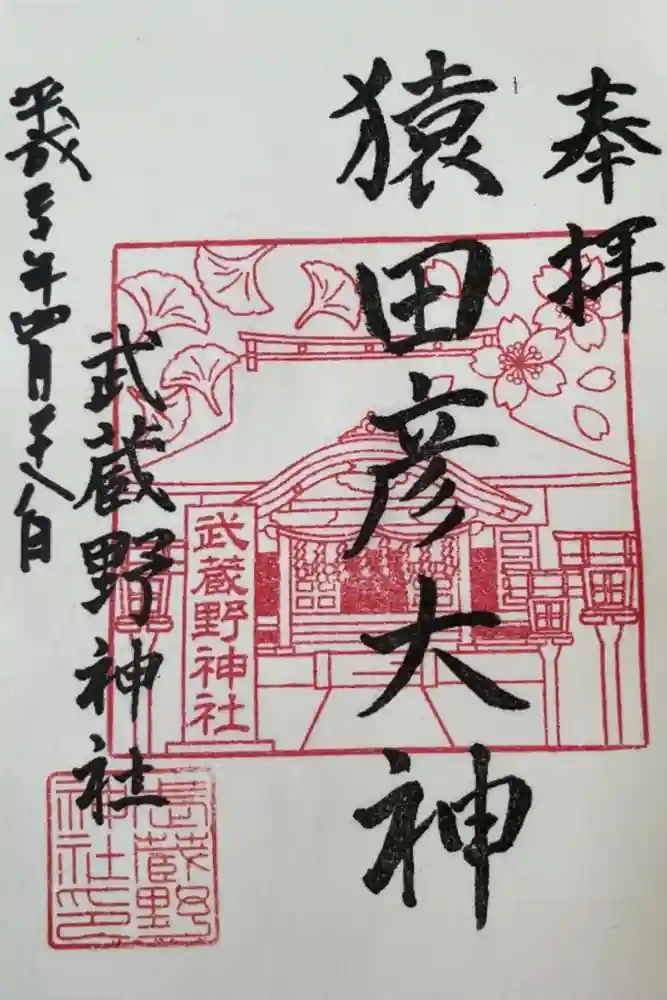 奉拝
猿田彦大神
武蔵野神社
平成三十年四月二十八日
武蔵野神社
武蔵野
神社印